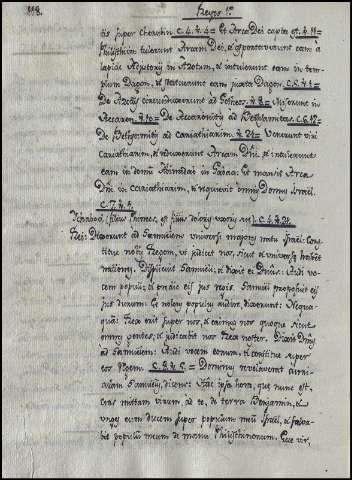 118. Regum 1.
tis super Cherubin c. 4. v. 4 = Et Arca Dei capta est v. 11 =
Philisthim tulerunt Arcam Dei, et asportaverunt eam a
lapide Adjutorij in Azotum, et intulerunt eam in tem-
plum Dagon, et statuerunt eam juxta Dagon. c. 5. v. 1 =
De Azoto
Accaron v. 10 = De c. 6. 12 =
De ad Cariathiarim. v. 21 = Venerunt viri
Cariathiarim, et reduxerunt Arcam Dni. et intulerunt
eam in domum Abinadab in Gabaa. Et mansit Arca
Dni. in Cariathiarim, et requievit omnis Domus Israel.
c. 7. v. 2.
Ichabod, filius Phinees, c. 4. v. 21.
Rei: Dixerunt ad Samuelem universi majores natu Israel: Cons-
titue nobis Regem, ut judicet nos, sicut et universae habent
nationes. Displicuit Samueli; et dixit ei Dnus: Audi vo-
cem populi; Samuel proposuit eis
jus dicum. Et noluit populus audire, dixerunt: Nequa-
quam: Rex erit super nos, et erimus nos quoque sicut
omnes gentes, et judicabit nos Rex noster. Dixit Dnus
ad Samuelem: Audi vocem eorum, et constitue super
eos Regem c. 8. v. 5. = Dominus revelaverat auri-
culam Samuelis, dicens: Hac ipsa hora, quae nunc est,
cras mittam virum ad te, de terra Benjamin, et
unges eum ducem super populum meum Israel, et salva-
bit populum meum de manu Philisthinorum. Ecce vir,